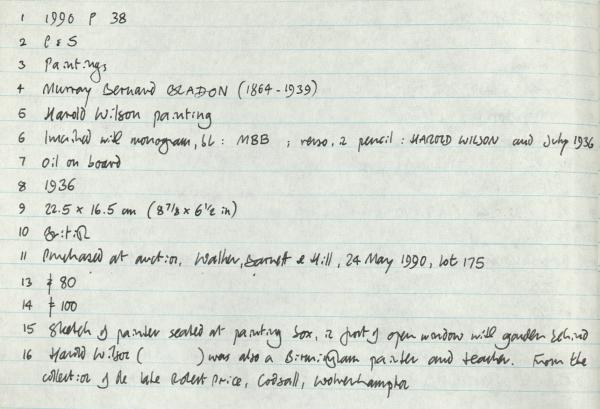 1 1990 P 38
2 P & S
3 Paintings
4 Murray Bernard BLADON (1864-1939)
5 Harold Wilson painting
6 Inscribed with monogram, bl: MBB ; verso, in pencil: HAROLD WILSON and July 1936
7 oil on board
8 1936
9 22.5 x 16.5 cm (8 7/8 x 6 1/2 in)
10 British
11 Purchased at auction, Walker, Barnett & Hill, 24 May 1990, lot 175
13 £ 80
14 £ 100
15 Sketch of painter seated at painting box, in front of open window with garden behind
16 Harold Wilson ( ) was also a Birmingham painter and teacher. From the
collection of the late Robert Price, Codsall, Wolverhampton